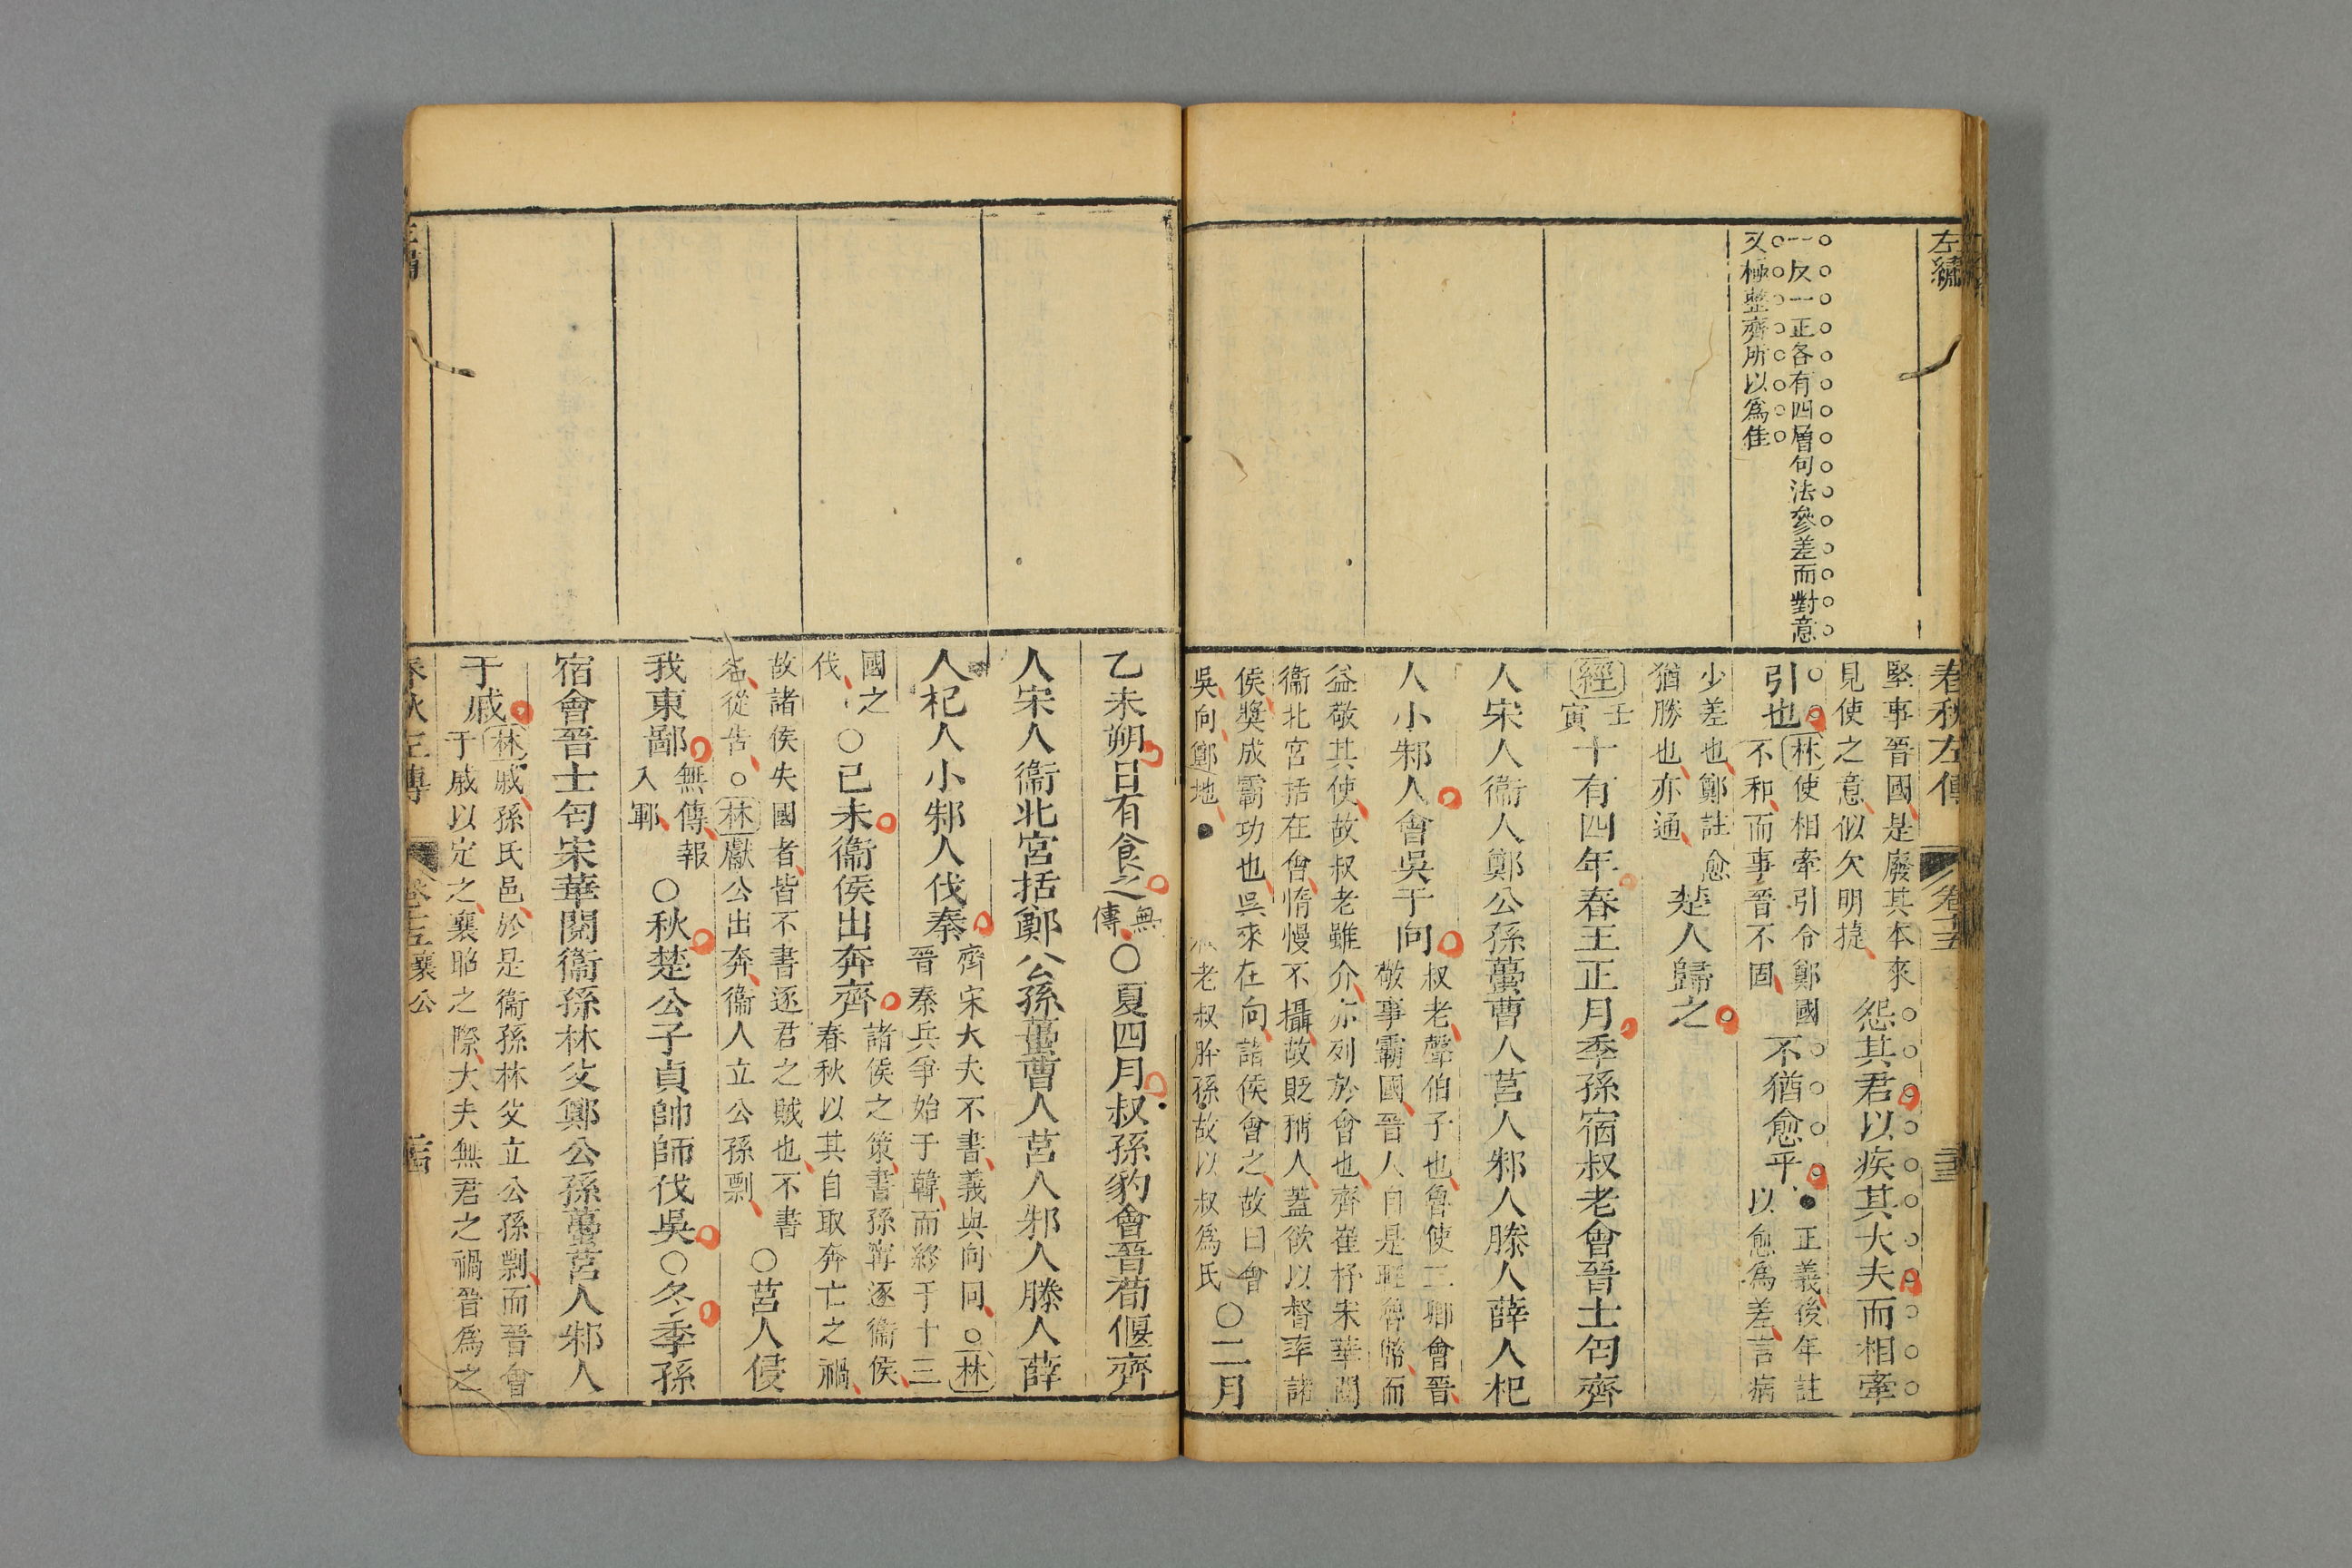 左繡
一反一正各有四層句法參差而對意
又極整齊所以爲佳
春秋左傳
堅事晉國是廢其本來
見使之意似欠明捷
怨其君以疾其大夫而相牽
引也
林使相牽引令鄭國
不和而事晉不固
不猶愈乎
●正義後年註
以愈爲差言病
少差也鄭註愈
猶勝也亦通
楚人歸之
經
壬
寅
十有四年春王正月季孫宿叔老會晉士匄齊
人宋人衞人鄭公孫蠆曹人莒人邾人滕人薛人杞
人小邾人會吳于向
叔老聲伯子也魯使二卿會晉
敬事霸國晉人自是輕魯幣而
益敬其使故叔老雖介亦列於會也齊崔杼宋華閱
衞北宮括在會惰慢不攝故貶稱人蓋欲以督率諸
侯獎成霸功也吳來在向諸侯會之故曰會
吳向鄭地●
老叔肸孫故以叔爲氏
○二月
乙未朔日有食之
無
傳
○夏四月叔孫豹會晉荀偃齊
人宋人衞北宮括鄭公孫蠆曹人莒人邾人滕人薛
人杞人小邾人伐秦
齊宋大夫不書義與向同○林
晉秦兵爭始于韓而終于十三
國之
伐
○己未衞侯出奔齊
諸侯之策書孫甯逐衞侯
春秋以其自取奔亡之禍
故諸侯失國者皆不書逐君之賊也不書
名從告○林獻公出奔衞人立公孫剽
○莒人侵
我東鄙
無傳報
入鄆
○秋楚公子貞帥師伐吳○冬季孫
宿會晉士匄宋華閱衞孫林父鄭公孫蠆莒人邾人
于戚
林戚孫氏邑於是衞孫林父立公孫剽而晉會
于戚以定之襄昭之際大夫無君之禍晉爲之
春秋左傳
襄公